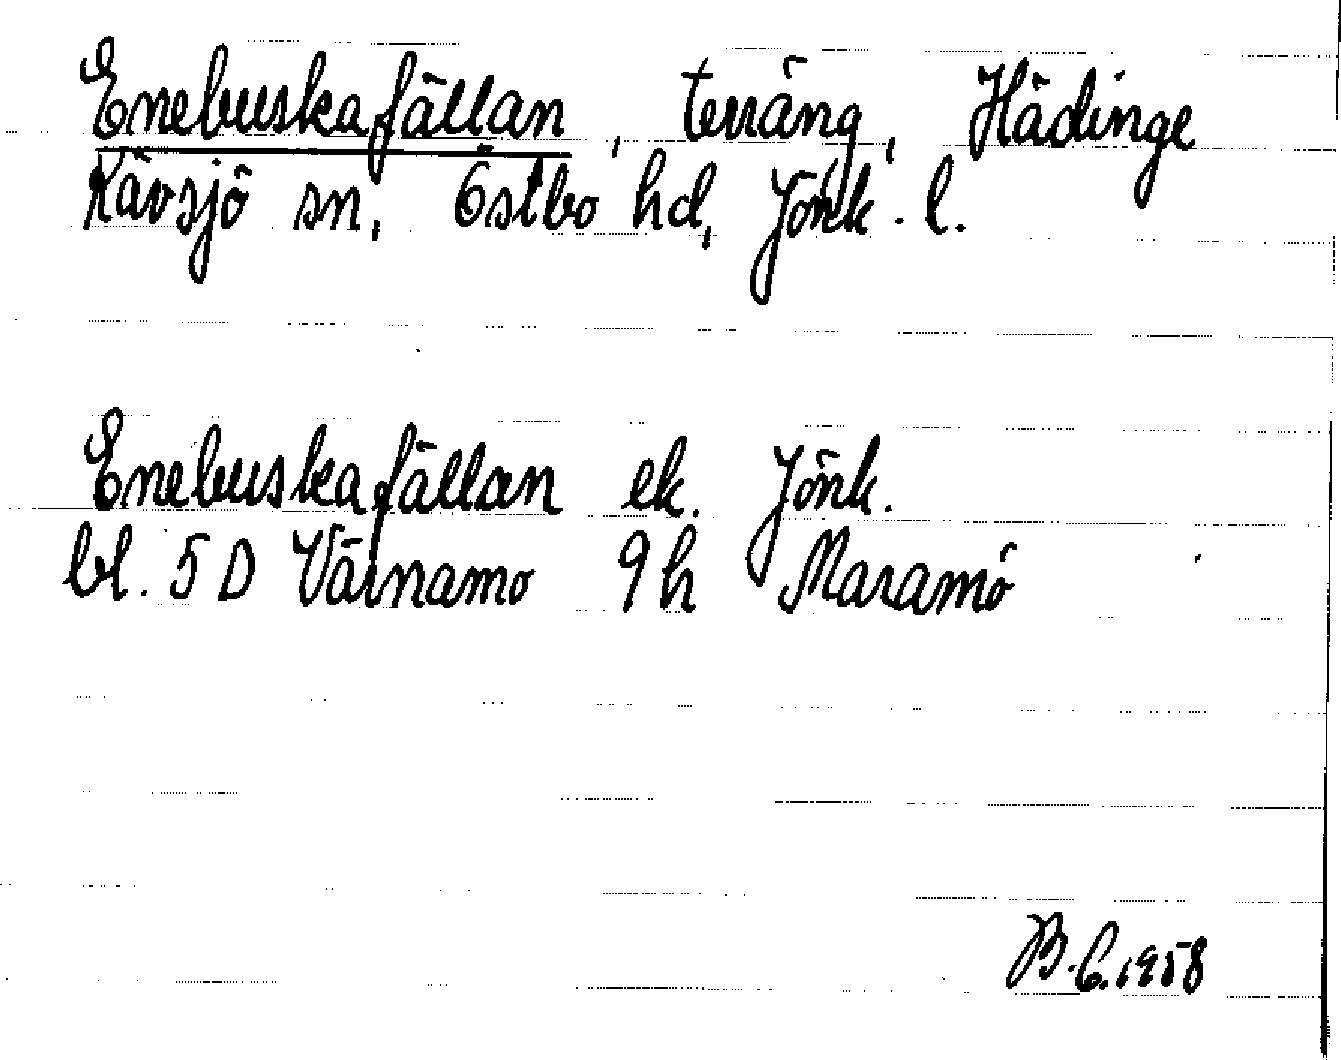 Enebuskafällan, terräng, Hädinge
Kävsjö sn, Östbo hd, Jönk. l.
Enebuskafällan ek. Jönk.
bl. 5 D Värnamo 9h Maramö
B.E. 1958